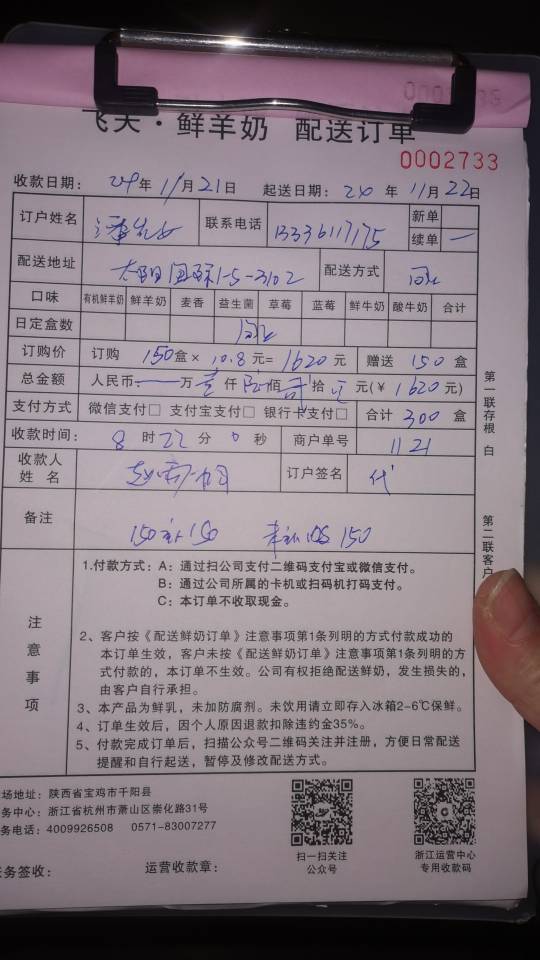 飞天·鲜羊奶 配送订单
0002733
收款日期: 24年11月21日 起送日期: 24年11月22日
订户姓名 联系电话 13336117175 新单
续单
配送地址 配送方式
口味 有机鲜羊奶 鲜羊奶 麦香 益生菌 草莓 蓝莓 鲜牛奶 酸牛奶 合计
日定盒数
订购价 订购 150盒×10.8元=1620元 赠送 150盒
总金额 人民币:万壹仟陆佰贰拾元(¥1620元)
支付方式 微信支付□ 支付宝支付□ 银行卡支付□ 合计 300 盒
收款时间: 8时22分0秒 商户单号 1121
收款人姓名 订户签名 代
备注
150 150 150
注意事项
1.付款方式:A:通过扫公司支付二维码支付宝或微信支付。
B:通过公司所属的卡机或扫码机打码支付。
C:本订单不收取现金。
2、客户按《配送鲜奶订单》注意事项第1条列明的方式付款成功的
本订单生效,客户未按《配送鲜奶订单》注意事项第1条列明的方
式付款的,本订单不生效。公司有权拒绝配送鲜奶,发生损失的,
由客户自行承担。
3、本产品为鲜乳,未加防腐剂。未饮用请立即存入冰箱2-6℃保鲜。
4、订单生效后,因个人原因退款扣除违约金35%。
5、付款完成订单后,扫描公众号二维码关注并注册,方便日常配送
提醒和自行起送,暂停及修改配送方式。
第一联存根 白
第二联客户
场地址:陕西省宝鸡市千阳县
务中心:浙江省杭州市萧山区崇化路31号
务电话:4009926508 0571-83007277
扫一扫关注
公众号
浙江运营中心
专用收款码
务签收: 运营收款章: